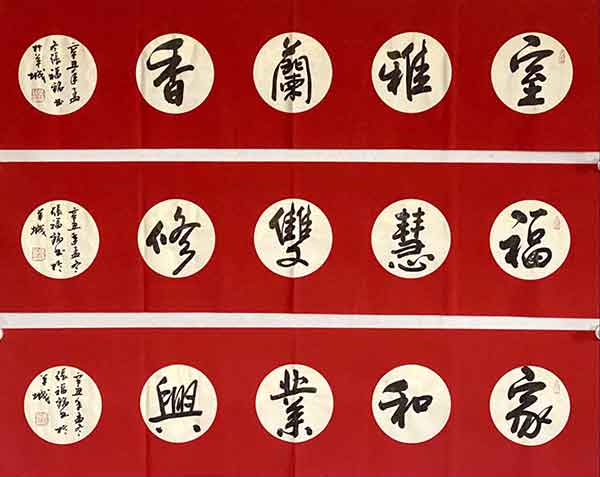 室雅蘭香
辛丑年孟
冬張福錦書
於羊城
福慧雙修
辛丑年孟冬
張福錦書於
羊城
家和業興
辛丑年孟冬
張福錦書於
羊城